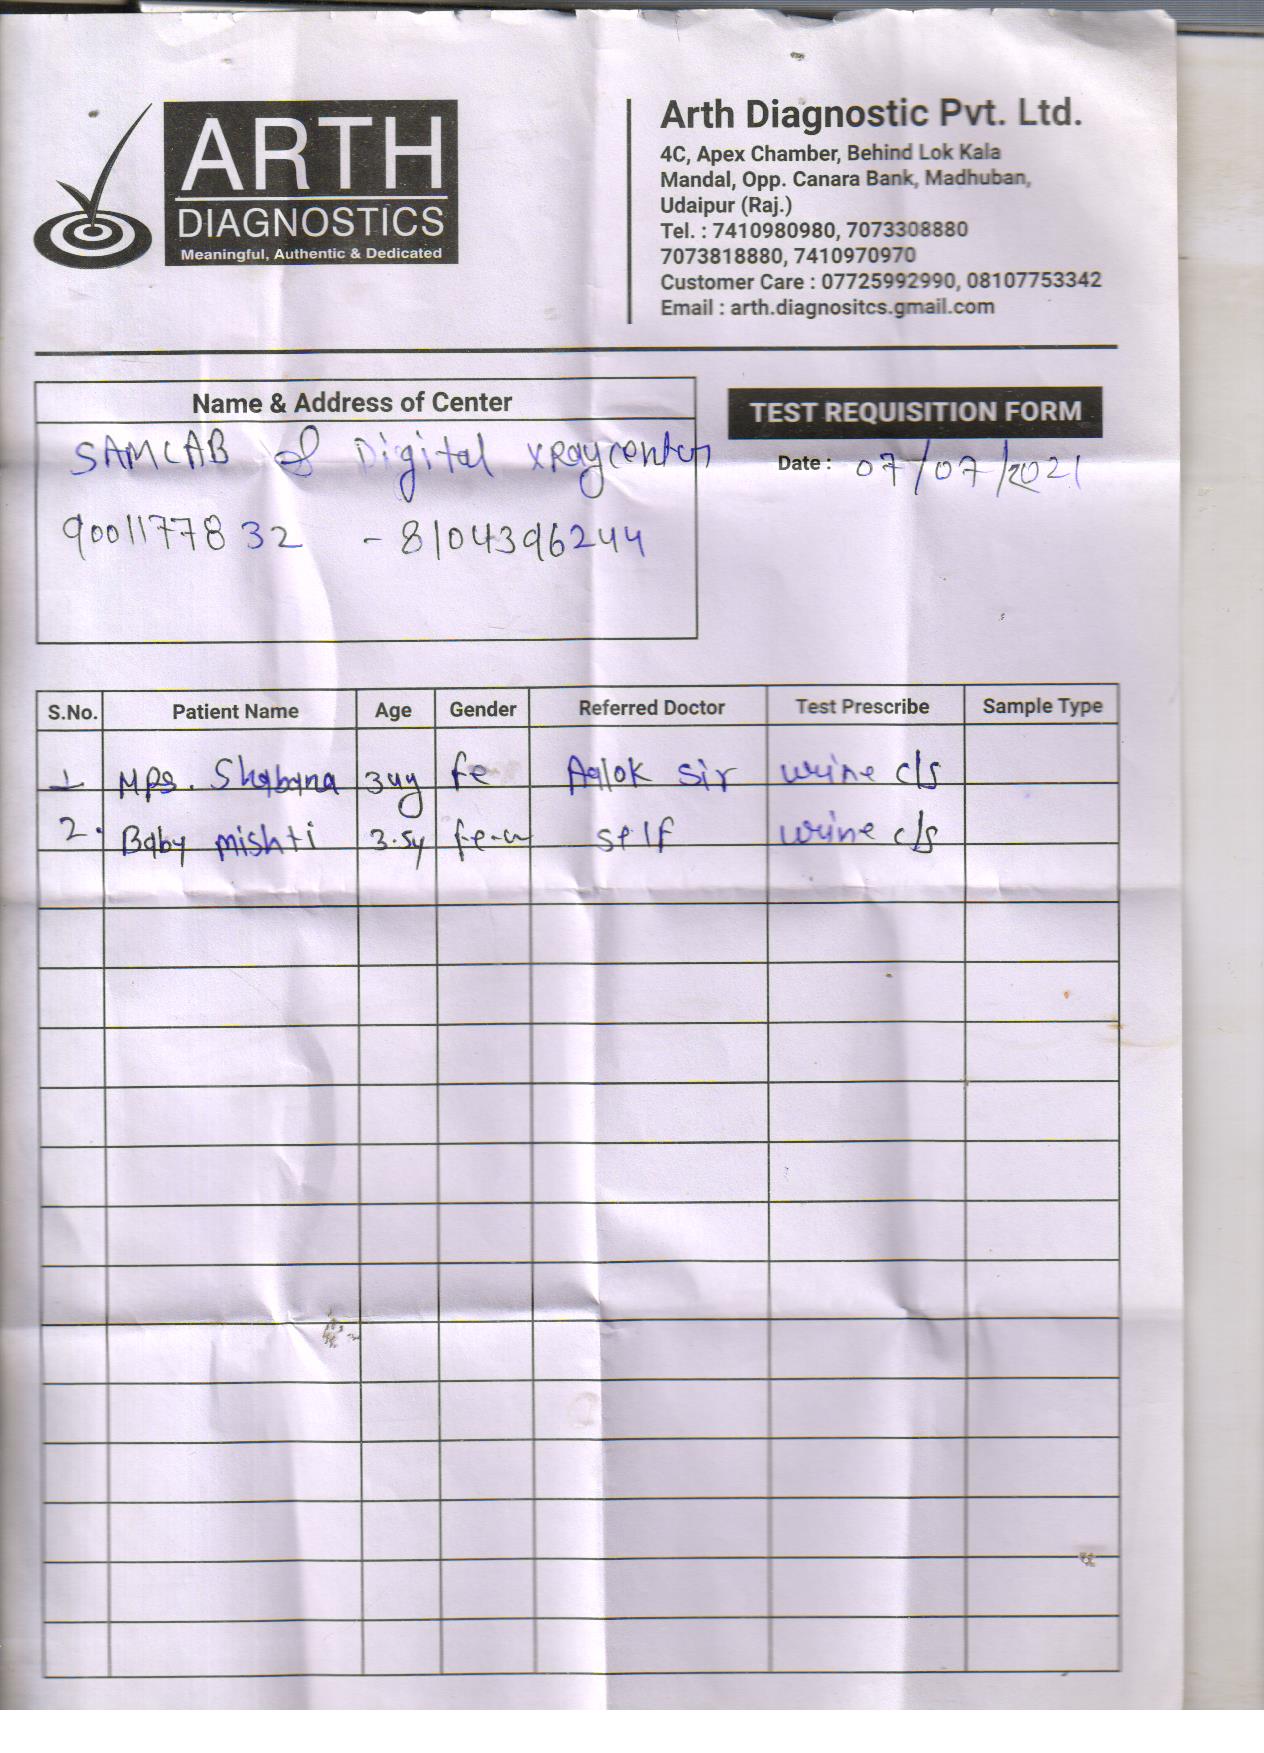 ARTH
DIAGNOSTICS
Meaningful, Authentic & Dedicated
Arth Diagnostic Pvt. Ltd.
4C, Apex Chamber, Behind Lok Kala
Mandal, Opp. Canara Bank, Madhuban,
Udaipur (Raj.)
Tel. : 7410980980, 7073308880
7073818880, 7410970970
Customer Care : 07725992990, 08107753342
Email : arth.diagnositcs.gmail.com
Name & Address of Center
SAMLAB & Digital xraycenter
9001177832 - 8104396244
TEST REQUISITION FORM
Date : 07/07/2021
S.No. Patient Name Age Gender Referred Doctor Test Prescribe Sample Type
1 Mrs. Shabana 34y fe Aalok sir urine c/s
2. Baby mishti 3.5y self urine c/s